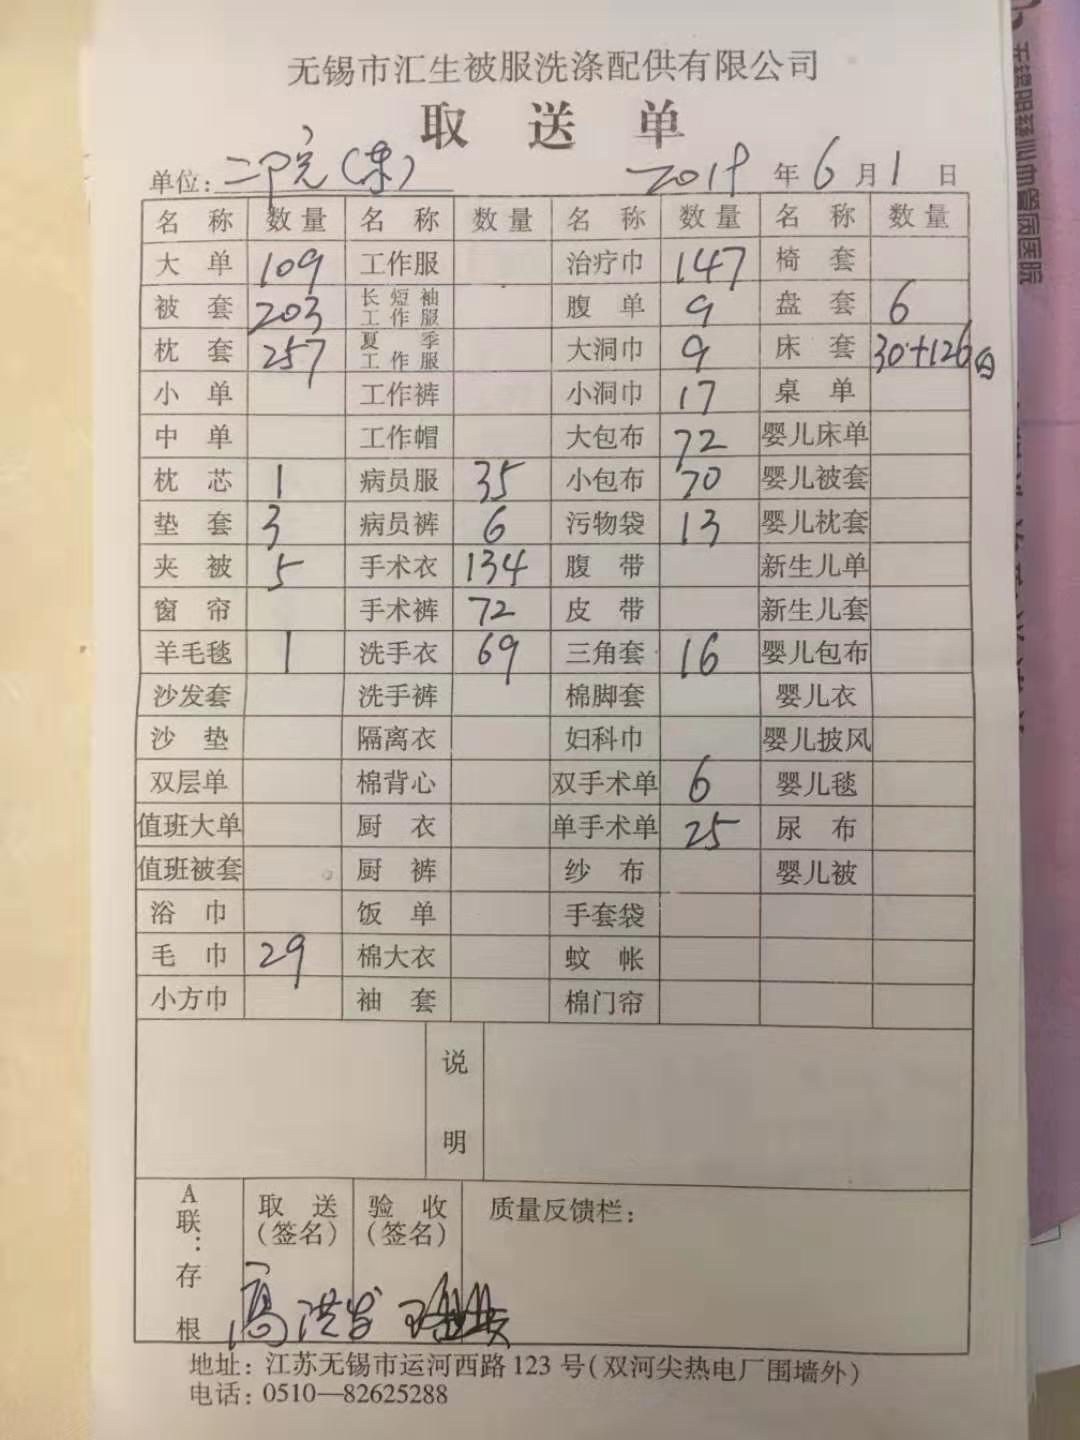 无锡市汇生被服洗涤配供有限公司
取送单
单位：二院（东） 2019年6月1日
名称 数量 名称 数量 名称 数量 名称 数量
大单 109 工作服 治疗巾 147 椅套
被套 203 长短袖工作服 腹单 9 盘套 6
枕套 257 夏季工作服 大洞巾 9 床套 30+126白
小单 工作裤 小洞巾 17 桌单
中单 工作帽 大包布 72 婴儿床单
枕芯 1 病员服 35 小包布 70 婴儿被套
垫套 3 病员裤 6 污物袋 13 婴儿枕套
夹被 5 手术衣 134 腹带 新生儿单
窗帘 手术裤 72 皮带 新生儿套
羊毛毯 1 洗手衣 69 三角套 16 婴儿包布
沙发套 洗手裤 棉脚套 婴儿衣
沙垫 隔离衣 妇科巾 婴儿披风
双层单 棉背心 双手术单 6 婴儿毯
值班大单 厨衣 单手术单 25 尿布
值班被套 厨裤 纱布 婴儿被
浴巾 饭单 手套袋
毛巾 29 棉大衣 蚊帐
小方巾 袖套 棉门帘
说明
A联：存根 取送（签名） 验收（签名） 质量反馈栏：
高洪发
地址：江苏无锡市运河西路123号（双河尖热电厂围墙外）
电话：0510—82625288